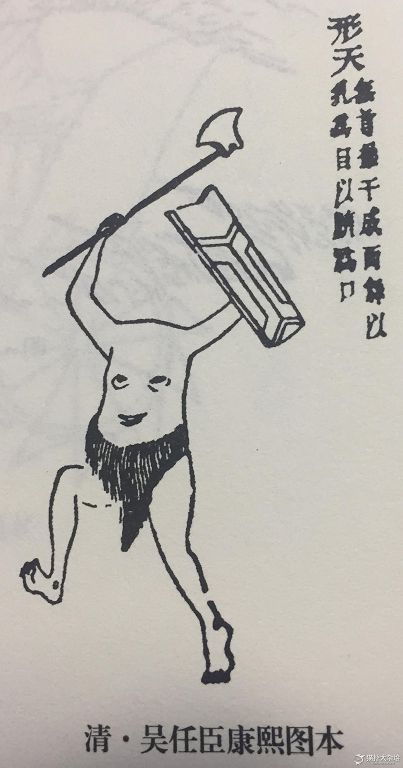 形天
無首操干戚而舞以
乳爲目以臍爲口
清·吴任臣康熙图本